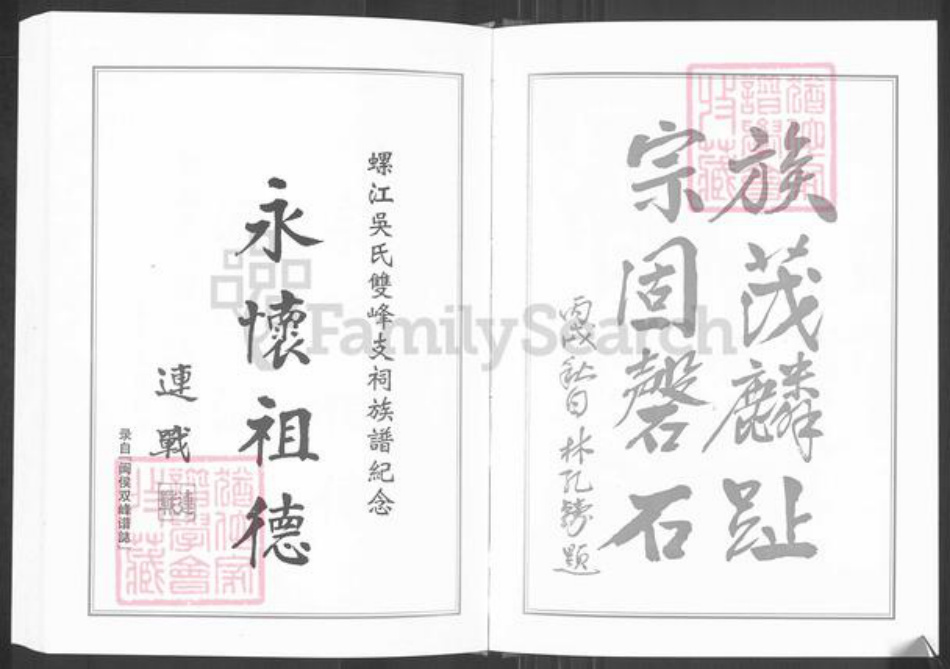 族茂麟趾
宗固磬石
丙戌秋日 林孔
題
螺江吳氏雙峰支祠族譜紀念
永懷祖德
連戰
录自「闽侯双峰谱誌」
FamilySearch